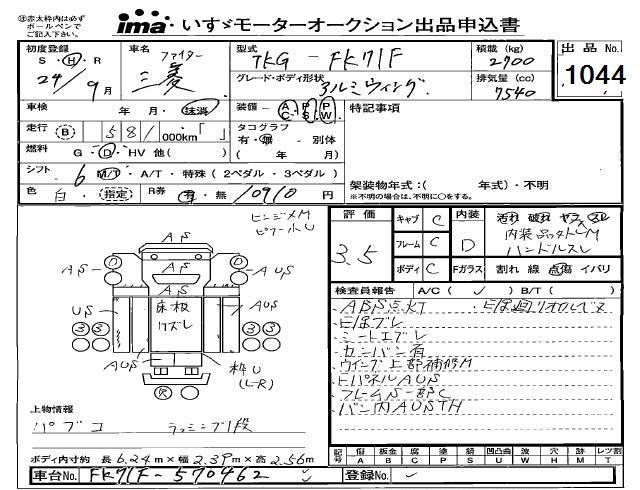 注赤太枠内は必ず
ボールペンで
ご記入下さい。
ima いすゞモーターオークション出品申込書
初度登録 車名 ファイター 型式 TKG - FK71F 積載(kg) 2700 出品No. 1044
S・H・R 三菱
24年 9月 グレード・ボディ形状 アルミウィング. 排気量(cc) 7540
車検 年・月・抹消 装備 A/C P/S P/W 特記事項
走行 B 581,000km「 」 タコグラフ
有・無 - 別体
燃料 G・D・HV 他( ) ( 年 月)
シフト 6 M/T・A/T・特殊(2ペダル・3ペダル) 架装物年式:( 年式)・不明
色 白・指定 R券 有・無 10910円 ※不明の場合は、不明に○をする。
ヒンジメM
評価 3.5
キャブ C 内装 D 汚れ 破れ ヤケ スレ
フレーム C
ハンドルスレ
ボディ C Fガラス 割れ 線 点傷 イバリ
検査員報告 A/C( ✓ ) B/T( )
・ABS点灯
・シートエブレ
・カンバン有
・ウイング上部補修M
・ヒパネルAUS
・フレームS一部C
AS
AS
AS
US
床板
ワズレ
AUS
AUS
枠U
(L-R)
上物情報
パブコ ラッシング1段
ボディ内寸約 長6.24m×幅2.39m×高2.56m
記号 傷 A 板金 B 腐 C 塗 P 錆 S 凹凸曲 U 要交換 W 穴 H 跡 M レツ割 T
車台No. FK71F-570462 登録No.